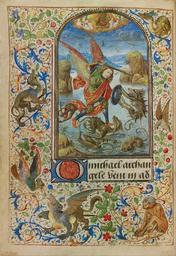 michael archan
gele veni in ad